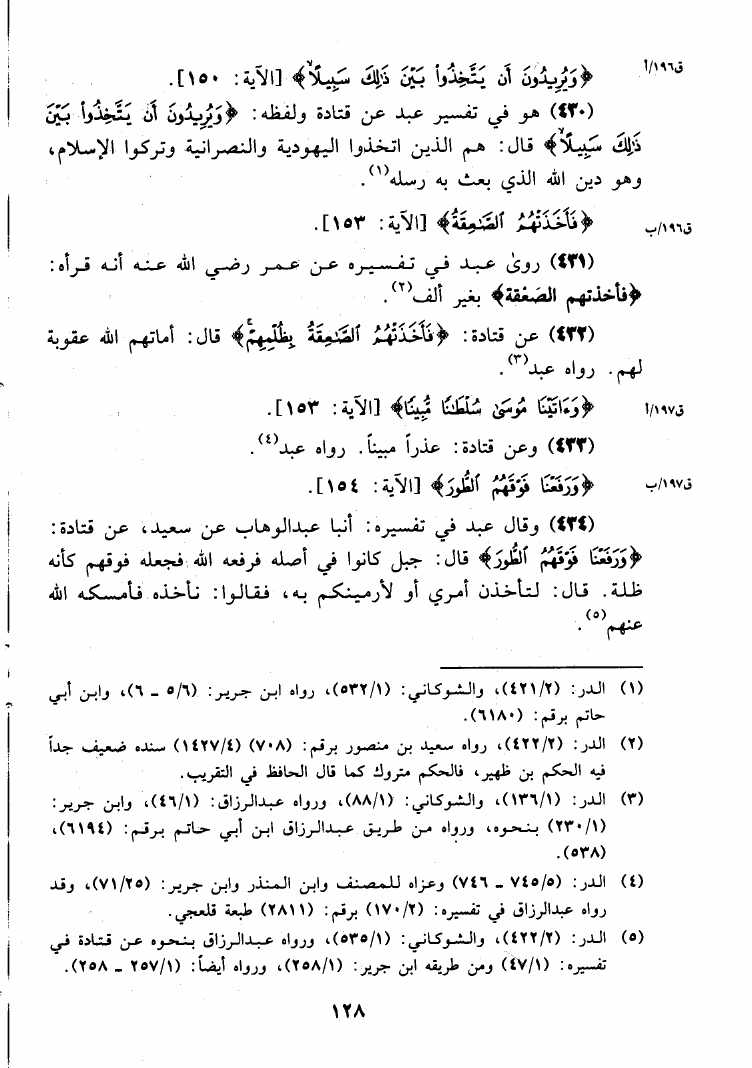 ﴿وَيُرِيدُونَ أَن يَتَّخِذُواْ بَيْنَ ذَٰلِكَ سَبِيلًا﴾ [الآية: ١٥٠]. ق١٩٦/أ
(٤٣٠) هو في تفسير عبد عن قتادة ولفظه: ﴿وَيُرِيدُونَ أَن يَتَّخِذُواْ بَيْنَ
ذَٰلِكَ سَبِيلًا﴾ قال: هم الذين اتخذوا اليهودية والنصرانية وتركوا الإسلام،
وهو دين الله الذي بعث به رسله(١).
﴿فَأَخَذَتْهُمُ ٱلصَّٰعِقَةُ﴾ [الآية: ١٥٣]. ق١٩٦/ب
(٤٣١) روىٰ عبد في تفسيره عن عمر رضي الله عنه أنه قرأه:
﴿فأخذتهم الصَعْقة﴾ بغير ألف(٢).
(٤٣٢) عن قتادة: ﴿فَأَخَذَتْهُمُ ٱلصَّٰعِقَةُ بِظُلْمِهِمْ﴾ قال: أماتهم الله عقوبة
لهم. رواه عبد(٣).
﴿وَءَاتَيْنَا مُوسَىٰ سُلْطَٰنًا مُّبِينًا﴾ [الآية: ١٥٣]. ق١٩٧/أ
(٤٣٣) وعن قتادة: عذراً مبيناً. رواه عبد(٤).
﴿وَرَفَعْنَا فَوْقَهُمُ ٱلطُّورَ﴾ [الآية: ١٥٤]. ق١٩٧/ب
(٤٣٤) وقال عبد في تفسيره: أنبا عبدالوهاب عن سعيد، عن قتادة:
﴿وَرَفَعْنَا فَوْقَهُمُ ٱلطُّورَ﴾ قال: جبل كانوا في أصله فرفعه الله فجعله فوقهم كأنه
ظلة. قال: لتأخذن أمري أو لأرمينكم به، فقالوا: نأخذه فأمسكه الله
عنهم(٥).
(١) الدر: (٤٢١/٢)، والشوكاني: (٥٣٢/١)، رواه ابن جرير: (٥/٦ ـ ٦)، وابن أبي
حاتم برقم: (٦١٨٠).
(٢) الدر: (٤٢٢/٢)، رواه سعيد بن منصور برقم: (٧٠٨) (١٤٢٧/٤) سنده ضعيف جداً
فيه الحكم بن ظهير، فالحكم متروك كما قال الحافظ في التقريب.
(٣) الدر: (١٣٦/١)، والشوكاني: (٨٨/١)، ورواه عبدالرزاق: (٤٦/١)، وابن جرير:
(٢٣٠/١) بنحوه، ورواه من طريق عبدالرزاق ابن أبي حاتم برقم: (٦١٩٤)،
(٥٣٨).
(٤) الدر: (٧٤٥/٥ ـ ٧٤٦) وعزاه للمصنف وابن المنذر وابن جرير: (٧١/٢٥)، وقد
رواه عبدالرزاق في تفسيره: (١٧٠/٢) برقم: (٢٨١١) طبعة قلعجي.
(٥) الدر: (٤٢٢/٢)، والشوكاني: (٥٣٥/١)، ورواه عبدالرزاق بنحوه عن قتادة في
تفسيره: (٤٧/١) ومن طريقه ابن جرير: (٢٥٨/١)، ورواه أيضاً: (٢٥٧/١ ـ ٢٥٨).
١٢٨